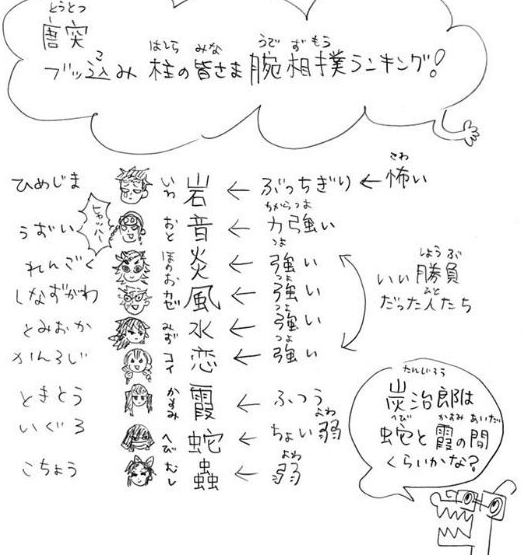 とうとつ
唐突
はしら みな うで ずもう
ブッ込み 柱の皆さま 腕相撲ランキング!
こ
ひめじま いわ 岩 ← ぶっちぎり ← 怖い
こわ
うずい おと 音 ← 力強い
ちからつよ
れんごく ほのお 炎 ← 強い
つよ
しなずがわ カゼ 風 ← 強い
つよ
とみおか みず 水 ← 強い
つよ
かんろじ コイ 恋 ← 強い
つよ
ときとう かすみ 霞 ← ふつう
いぐろ へび 蛇 ← ちょい弱
よわ
こちょう むし 蟲 ← 弱
よわ
しょうぶ
いい勝負
ひと
だった人たち
たんじろう
炭治郎は
へび かすみ あいだ
蛇と霞の間
くらいかな?